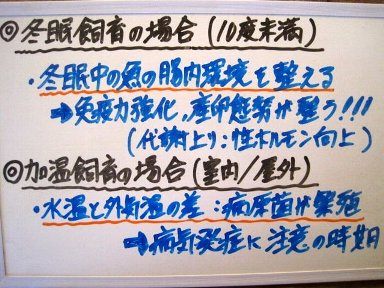 ◎冬眠飼育の場合(10度未満)
・冬眠中の魚の腸内環境を整える
➡免疫力強化、産卵態勢が整う!!!
(代謝上り:性ホルモン向上)
◎加温飼育の場合(室内/屋外)
・水温と外気温の差:病原菌が繁殖
➡病気発症に注意の時期